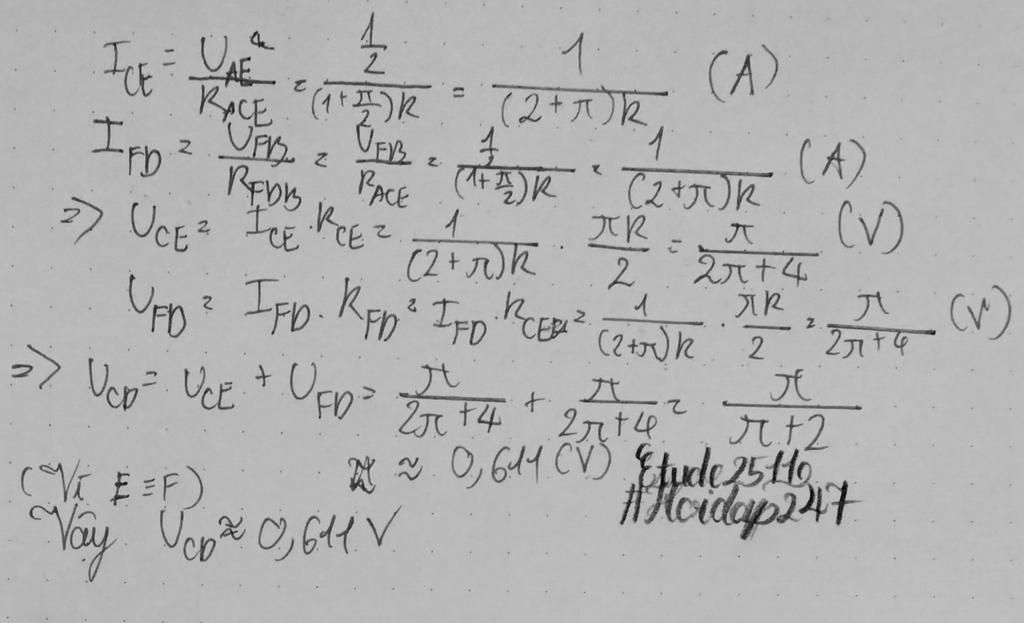 I_CE = U_AE / R_ACE = (1/2) / ((1 + π/2)R) = 1 / ((2 + π)R) (A)
I_FD = U_FB / R_FDB = U_FB / R_ACE = (1/2) / ((1 + π/2)R) = 1 / ((2 + π)R) (A)
=> U_CE = I_CE . R_CE = 1 / ((2 + π)R) . πR / 2 = π / (2π + 4) (V)
U_FD = I_FD . R_FD = I_FD . R_CE = 1 / ((2 + π)R) . πR / 2 = π / (2π + 4) (V)
=> U_CD = U_CE + U_FD = π / (2π + 4) + π / (2π + 4) = π / (π + 2)
(Vì E ≡ F) ≈ 0,611 (V) Etude25110
#Hoidap247
Vậy U_CD ≈ 0,611 V